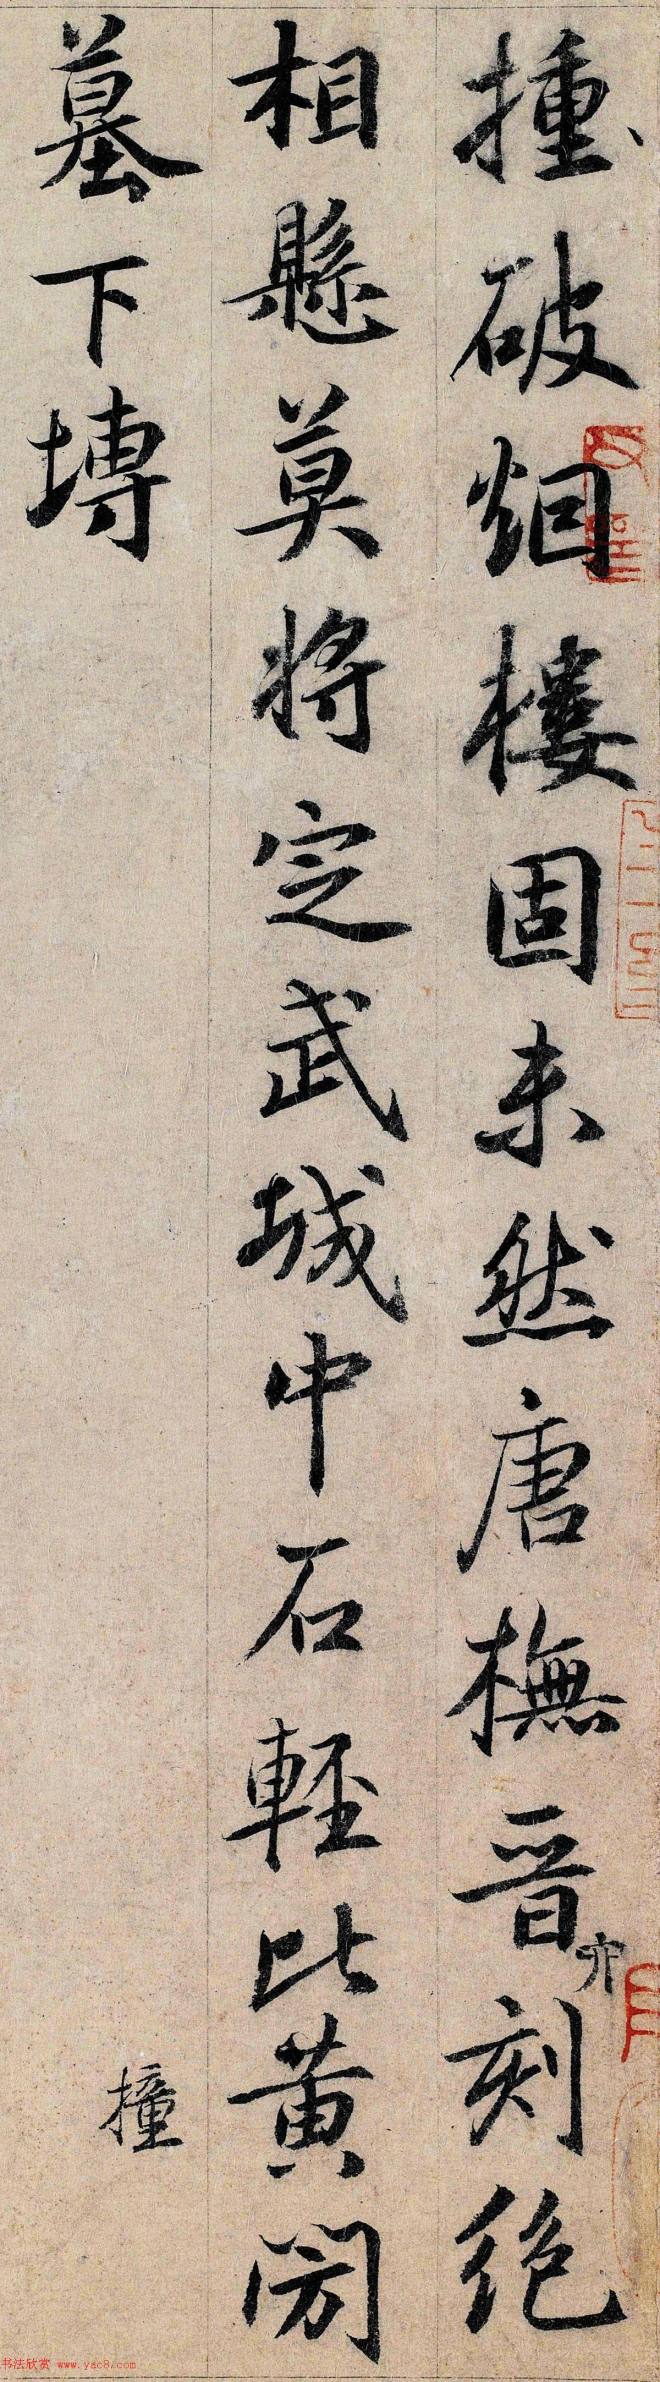 揰破烟樓固未然唐橅晉刻絶
亦
相懸莫将定武城中石輕比黄閍
墓下塼
撞
书法欣赏 www.yac8.com